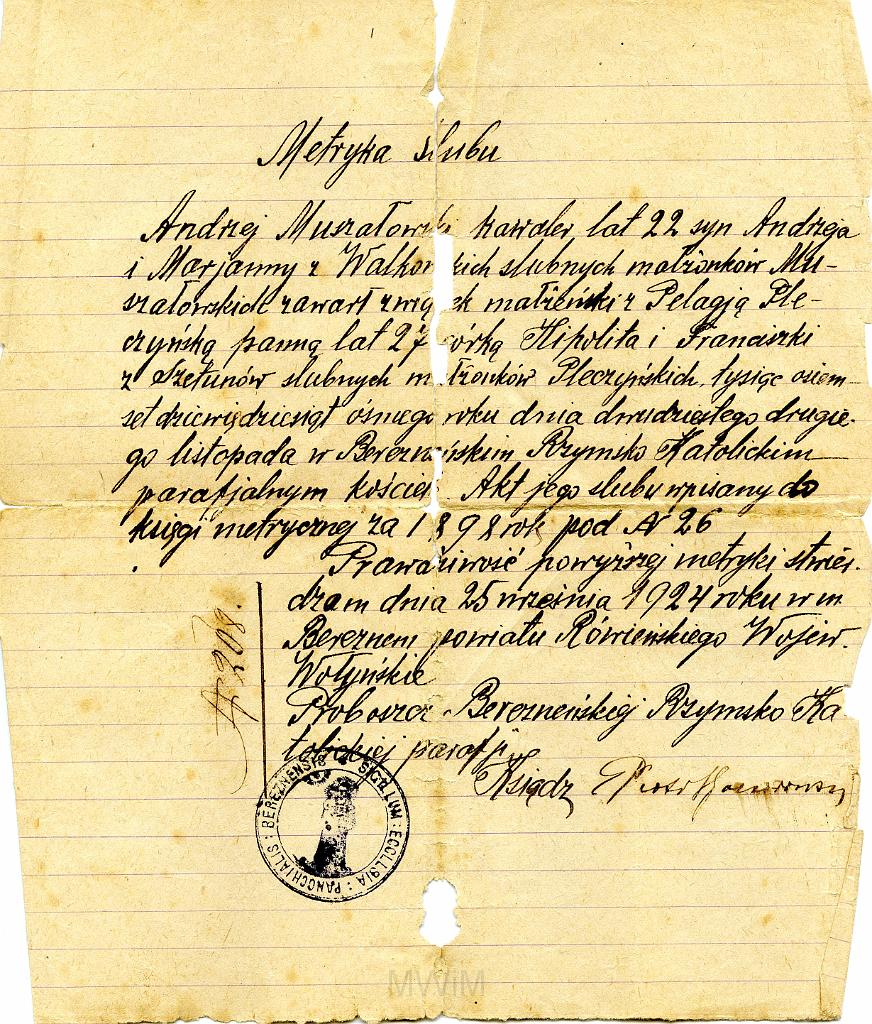 Metryka ślubu
Andrzej Muszałowski kawaler, lat 22 syn Andrzeja
i Marjanny z Walkowskich slubnych małżonków Mu-
szałowskich zawarł związek małżeński z Pelagją Ple-
czyńską panną lat 27 córką Hipolita i Franciszki
z Szetunów slubnych małżonków Pleczyńskich, tysiąc osiem-
set dziewiędziesiąt ośmego roku dnia dwudziestego drugie-
go listopada w Berezneńskim Rzymsko Katolickim
parafjalnym kościele. Akt jego slubu wpisany do
księgi metrycznej za 1898 rok pod N 26
Prawdziwość powyższej metryki stwier-
dzam dnia 25 września 1924 roku w m.
Bereznem powiatu Rówieńskiego Wojew.
Wołyńskie
Proboszcz Berezneńskiej Rzymsko Ka-
tolickiej parafji
Ksiądz Piotr
N 208.
SIGILLUM : ECCLLSIA : PANOCHIALIS : BEREZNENSIS
MWiM